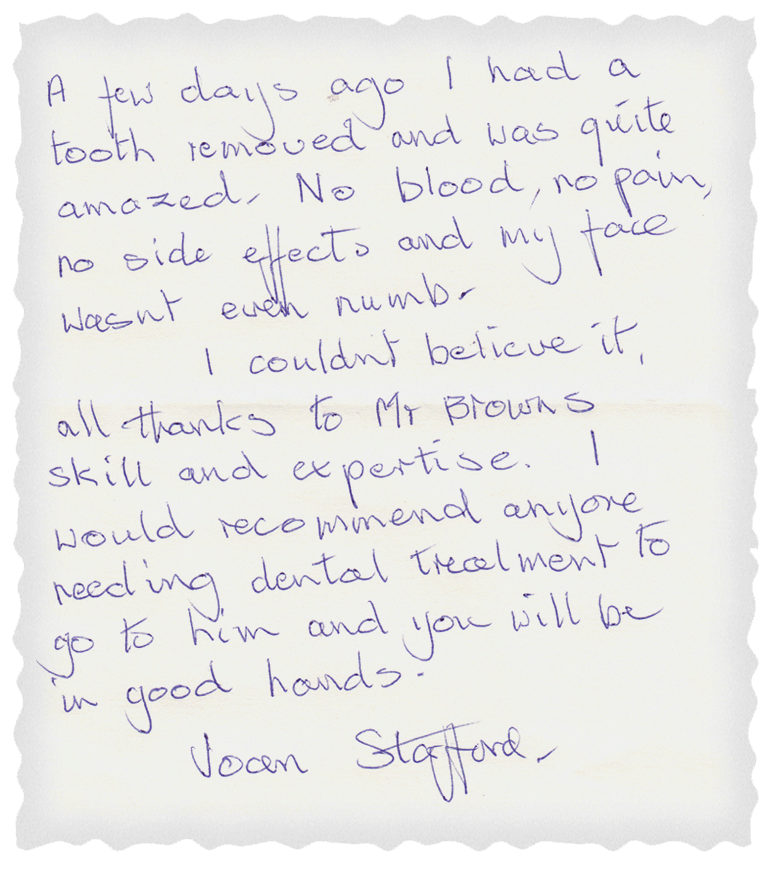 A few days ago I had a
tooth removed and was quite
amazed. No blood, no pain,
no side effects and my face
wasnt even numb.
I couldn't believe it,
all thanks to Mr Browns
skill and expertise. I
would recommend anyone
needing dental treatment to
go to him and you will be
in good hands.
Joan Stafford.